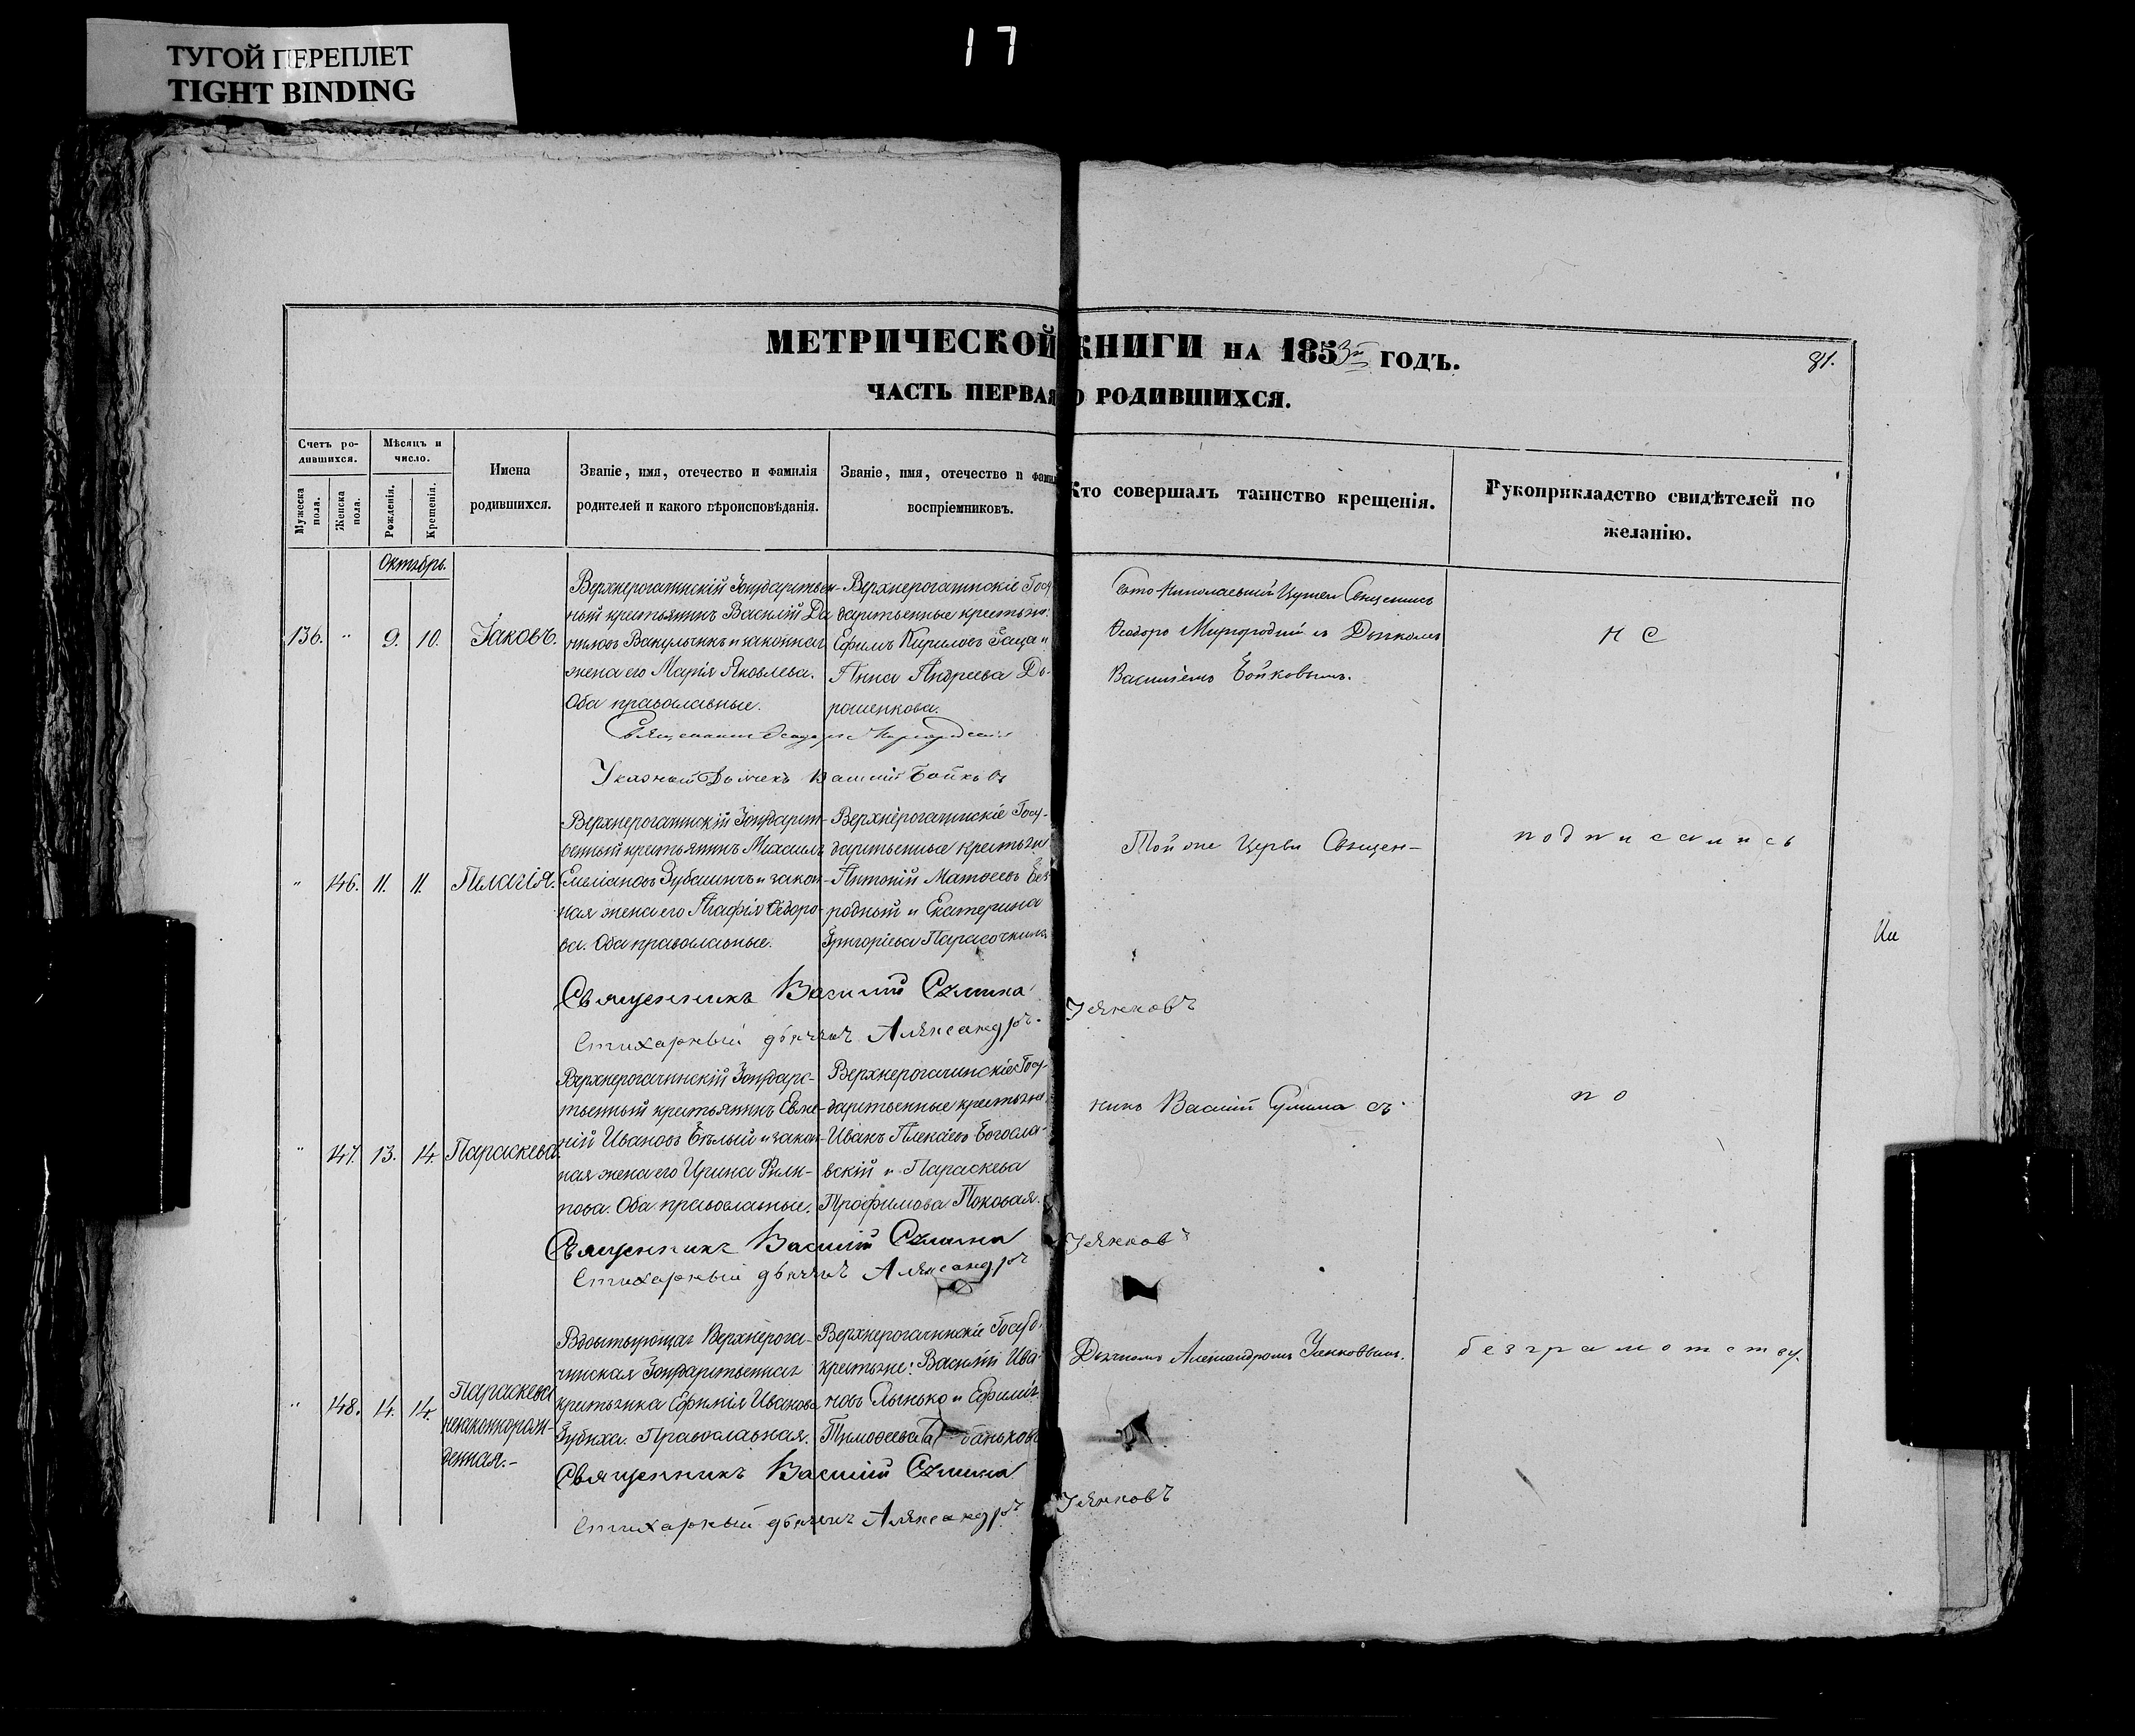 ТУГОЙ ПЕРЕПЛЕТ
TIGHT BINDING
17
МЕТРИЧЕСКОЙ КНИГИ НА 1853й ГОДЪ.
81.
ЧАСТЬ ПЕРВАЯ О РОДИВШИХСЯ.
Счетъ ро-
дившихся.
Мужеска пола.
Женска пола.
Мѣсяцъ и
число.
Рожденія.
Крещенія.
Имена
родившихся.
Званіе, имя, отечество и фамилія
родителей и какого вѣроисповѣданія.
Званіе, имя, отечество и фамил
воспріемниковъ.
Кто совершалъ таинство крещенія.
Рукоприкладство свидѣтелей по
желанію.
Октябрь
136. " 9. 10. Іаковъ.
Верхнерогачинскій Государствен-
ный крестьянинъ Василій Да
ниловъ Вакулычикъ и законная
жена его Марія Яковлева.
Оба православные.
Верхнерогачинскіе Госу
дарственные крестьяне:
Ефимъ Кириловъ Гаца и
Анна Андреева До-
рошенкова.
Свято Николаевской Церкви Священникъ
Ѳеодоръ Миргородскій съ Дьякомъ
Василіемъ Бойковымъ.
Н С
Священникъ Ѳеодоръ Миргородскій
Указный Дьячекъ Василій Бойковъ
" 146. 11. 11. Пелагія.
Верхнерогачинскій Государст-
венный крестьянинъ Михаилъ
Емеліановъ Зубашичъ и закон-
ная жена его Агафія Ѳедоро-
ва. Оба православные.
Верхнерогачинскіе Госу-
дарственные крестьяне
Антоній Матѳеевъ Без
родный и Екатерина
Григоріева Парасочкина
Той же Церкви Священ-
подписались
Священникъ Василій Сулима
Стихарный дьячекъ Александръ Уянковъ
" 147. 13. 14. Параскева.
Верхнерогачинскій Государс-
твенный крестьянинъ Евме-
ній Ивановъ Бѣлый и закон-
ная жена его Ирина Фили-
пова. Оба православные.
Верхнерогачинскіе Госу-
дарственные крестьяне
Иванъ Алексѣевъ Богосла-
вскій и Параскева
Трофимова Токовая.
никъ Василій Сулима съ
по
Священникъ Василій Сулима
Стихарный дьячекъ Александръ Уянковъ
" 148. 14. 14. Параскева
незаконнорож-
денная.-
Вдовствующая Верхнерога-
чинская Государственная
крестьянка Ефимія Иванова
Зубиха. Православная.
Верхнерогачинскіе Госуд.
крестьяне: Василій Ива-
новъ Слынько и Ефимія
Тимоѳеева
Дьячкомъ Александромъ Уянковымъ.
безграмотству.
Священникъ Василій Сулима
Стихарный дьячекъ Александръ Уянковъ